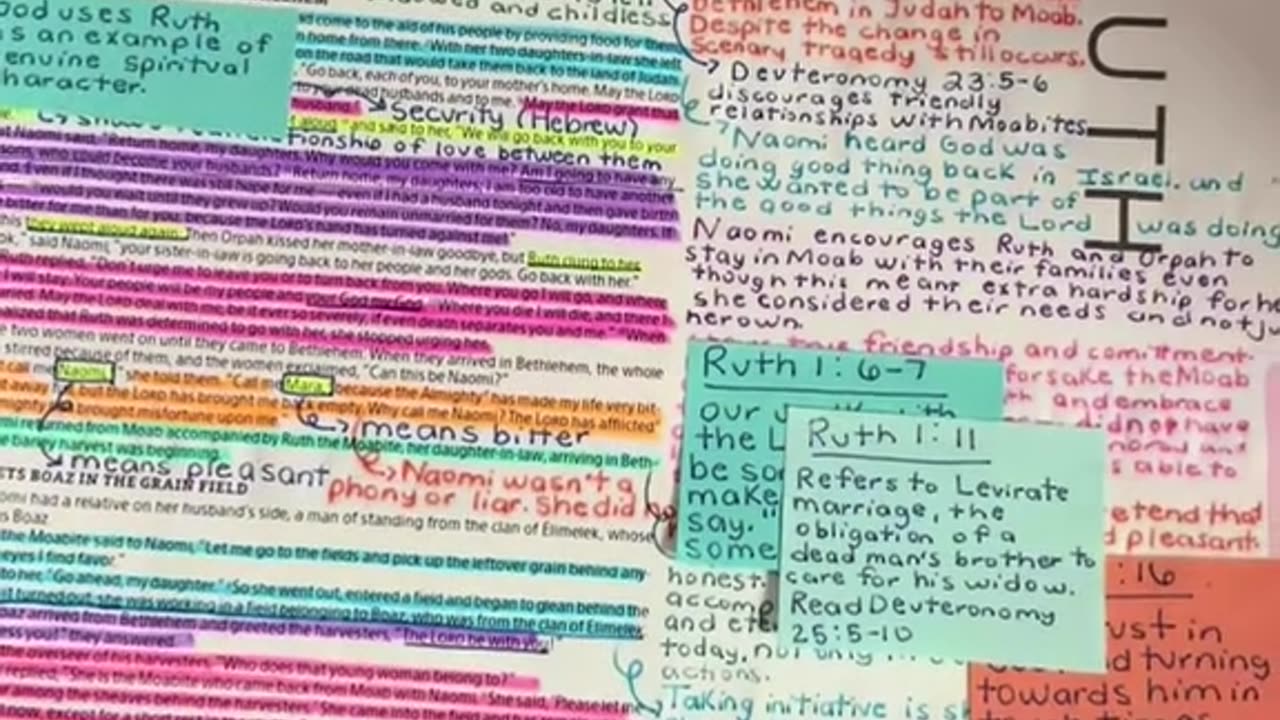 God uses Ruth
as an example of
genuine spiritual
character.
and childless
come to the aid of his people by providing food for them
home from there. With her two daughters-in-law she left
on the road that would take them back to the land of Judah.
"Go back, each of you, to your mother's home. May the LORD
to your dead husbands and to me. May the LORD grant that
husband."
Security (Hebrew)
aloud and said to her, "We will go back with you to your
tionship of love between them
Naomi said, "Return home, my daughters. Why would you come with me? Am I going to have any
sons, who could become your husbands? Return home, my daughters; I am too old to have another
Even if I thought there was still hope for me—even if I had a husband tonight and then gave birth
would you wait until they grew up? Would you remain unmarried for them? No, my daughters. It
bitter for me than for you, because the LORD's hand has turned against me!"
this they wept aloud again. Then Orpah kissed her mother-in-law goodbye, but Ruth clung to her.
said Naomi, "your sister-in-law is going back to her people and her gods. Go back with her."
Ruth replied, "Don't urge me to leave you or to turn back from you. Where you go I will go, and where
I will stay. Your people will be my people and your God my God. Where you die I will die, and there I
May the LORD deal with me, be it ever so severely, if even death separates you and me." When
realized that Ruth was determined to go with her, she stopped urging her.
two women went on until they came to Bethlehem. When they arrived in Bethlehem, the whole
stirred because of them, and the women exclaimed, "Can this be Naomi?"
call me Naomi," she told them. "Call me Mara, because the Almighty has made my life very bit-
away the LORD has brought me empty. Why call me Naomi? The LORD has afflicted
brought misfortune upon me
means bitter
returned from Moab accompanied by Ruth the Moabite, her daughter-in-law, arriving in Beth-
barley harvest was beginning.
means pleasant
Naomi wasn't a
phony or liar. She did
BOAZ IN THE GRAIN FIELD
had a relative on her husband's side, a man of standing from the clan of Elimelek, whose
Boaz
the Moabite said to Naomi, "Let me go to the fields and pick up the leftover grain behind any-
eyes I find favor."
to her, "Go ahead, my daughter." So she went out, entered a field and began to glean behind the
turned out, she was working in a field belonging to Boaz, who was from the clan of Elimelek.
arrived from Bethlehem and greeted the harvesters, "The LORD be with you!"
you!" they answered.
the overseer of his harvesters, "Who does that young woman belong to?"
replied, "She is the Moabite who came back from Moab with Naomi. She said, 'Please let me
among the sheaves behind the harvesters.' She came into the field and has
now, except for a short
UTH
Bethlehem in Judah to Moab.
Despite the change in
scenary tragedy still occurs.
Deuteronomy 23:5-6
discourages friendly
relationships with Moabites
Naomi heard God was
doing good thing back in Israel. and
she wanted to be part of
the good things the Lord was doing
Naomi encourages Ruth and Orpah to
stay in Moab with their families even
though this meant extra hardship for
she considered their needs and not
her own.
true friendship and comittment.
forsake the Moab
and embrace
did not have
able to
pleasant.
Ruth 1:6-7
our
the
be
make
say."
some
Ruth 1:11
Refers to Levirate
marriage, the
obligation of a
dead man's brother to
care for his widow.
Read Deuteronomy
25:5-10
:16
in
turning
towards him in
honest.
and
today,
actions.
Taking initiative is